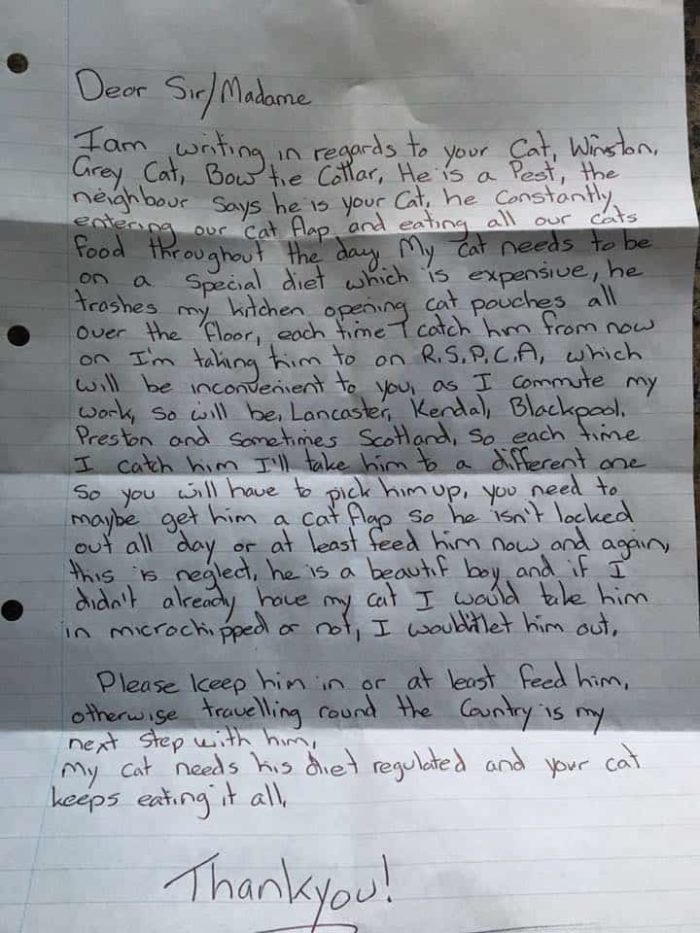 Dear Sir/Madame
I am writing in regards to your Cat, Winston,
Grey Cat, Bow tie Collar, He is a Pest, the
neighbour says he is your Cat, he Constantly
entering our cat flap and eating all our cats
food throughout the day, My cat needs to be
on a special diet which is expensive, he
trashes my kitchen opening cat pouches all
over the floor, each time I catch him from now
on I'm taking him to an R.S.P.C.A, which
will be inconvenient to you, as I commute my
work, so will be, Lancaster, Kendal, Blackpool,
Preston and sometimes Scotland, so each time
I catch him I'll take him to a different one
so you will have to pick him up, you need to
maybe get him a cat flap so he isn't locked
out all day or at least feed him now and again,
this is neglect, he is a beautif boy and if I
didn't already have my cat I would take him
in microchipped or not, I wouldn't let him out.
Please keep him in or at least feed him,
otherwise travelling round the Country is my
next step with him,
My cat needs his diet regulated and your cat
keeps eating it all,
Thankyou!